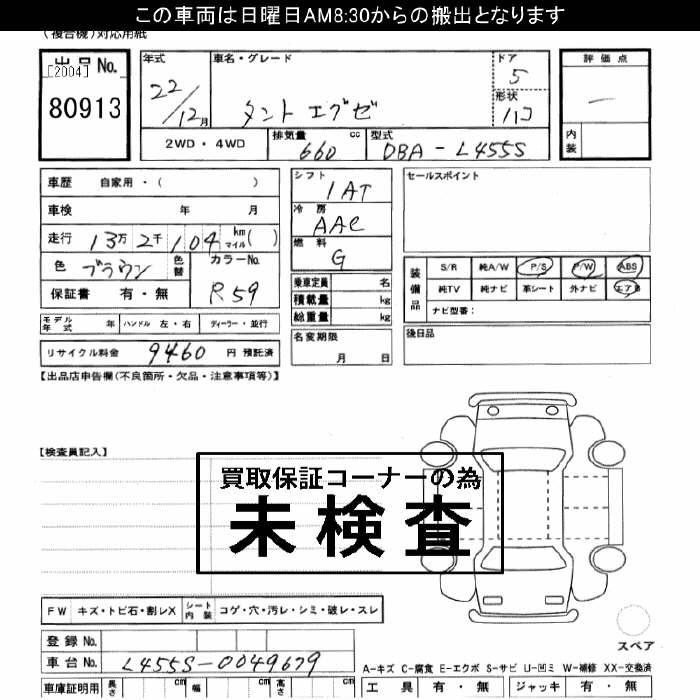 この車両は日曜日AM8:30からの搬出となります
(複合機)対応用紙
出品No.
[2004]
80913
年式
22/12月
車名・グレード
タント エグゼ
ドア
5
形状
ハコ
評価点
―
内装
2WD・4WD
排気量 cc
660
型式
DBA-L455S
車歴 自家用・( )
車検 年 月
走行 13万2千104 km マイル( )
色 ブラウン 色替
カラーNo.
R59
保証書 有・無
シフト
IAT
冷房
AAC
燃料
G
乗車定員 名
積載量 kg
総重量 kg
セールスポイント
装備品
S/R 純A/W P/S P/W ABS
純TV 純ナビ 革シート 外ナビ エアB
ナビ型番:
モデル年式 年 ハンドル 左・右 ディーラー・並行
名変期限
月 日
後日品
リサイクル料金 9460 円 預託済
【出品店申告欄(不良箇所・欠品・注意事項等)】
【検査員記入】
買取保証コーナーの為
未検査
FW キズ・トビ石・割レX シート内装 コゲ・穴・汚レ・シミ・破レ・スレ
スペア
登録No.
車台No. L455S-0049679
A-キズ C-腐食 E-エクボ S-サビ U-凹ミ W-補修 XX-交換済
車庫証明用 長さ cm 幅 cm 高さ cm
工具 有・無 ジャッキ 有・無